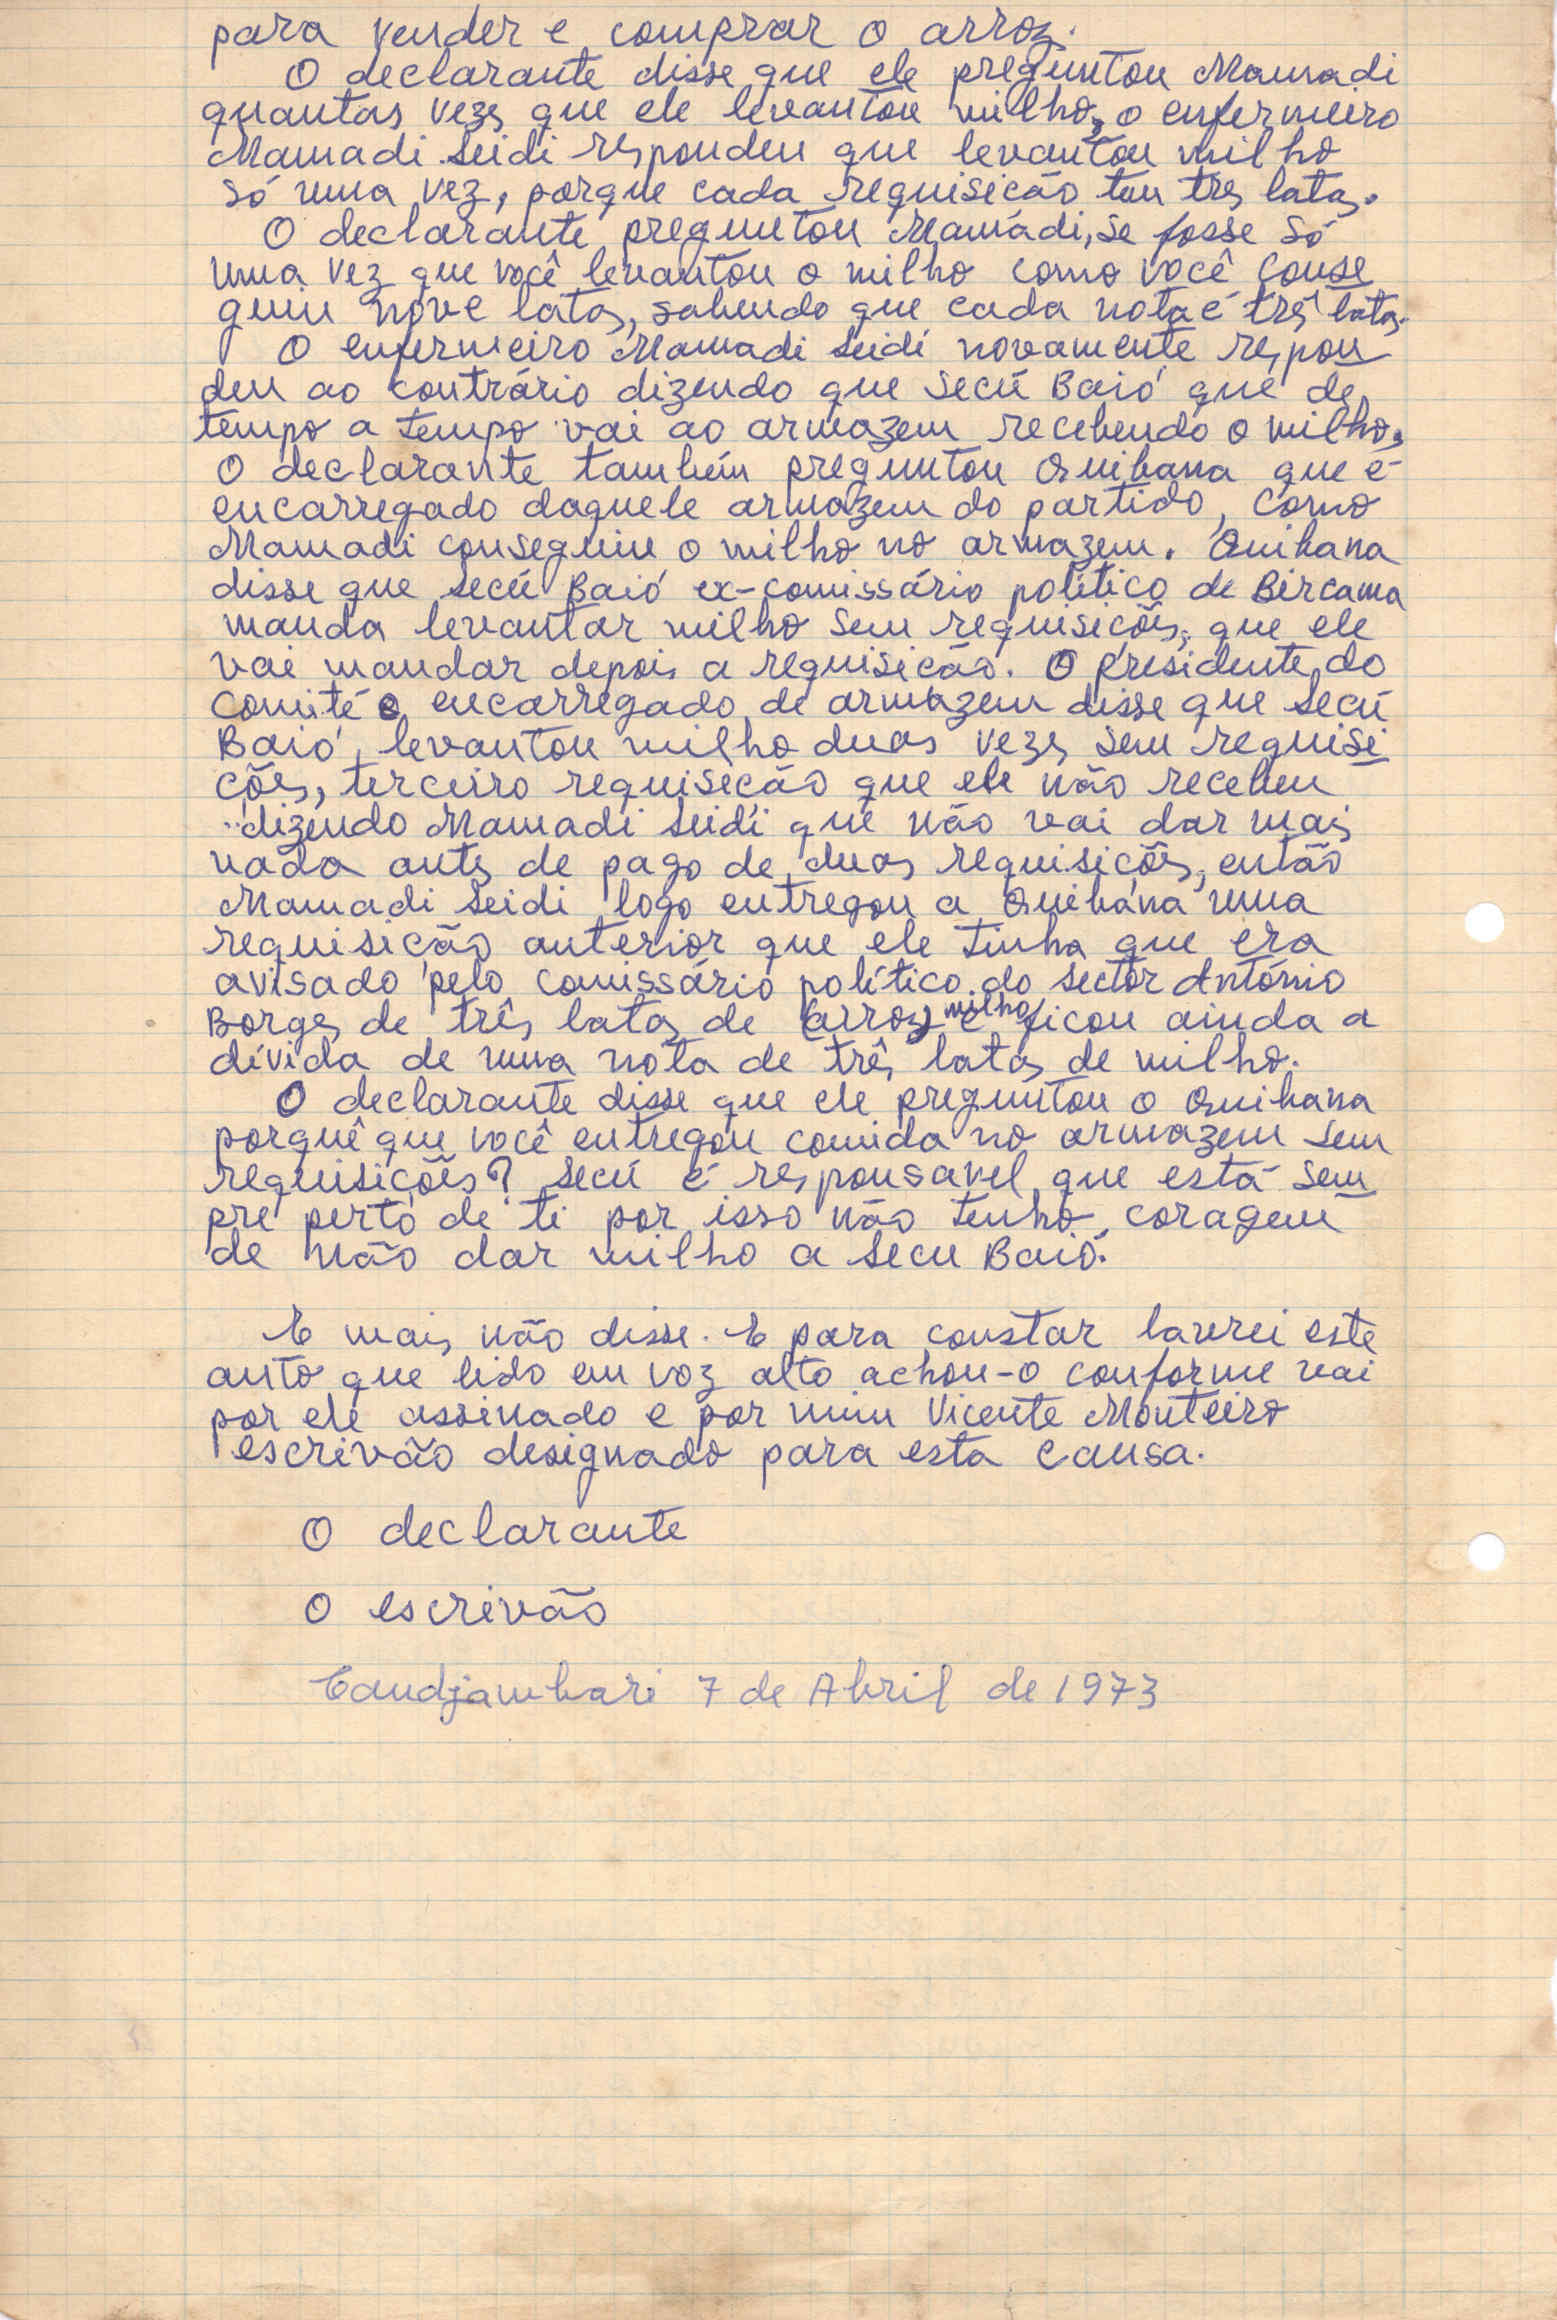 para vender e comprar o arroz.
O declarante disse que ele preguntou Mamadi
quantas vezes que ele levantou milho, o enfermeiro
Mamadi Seidi respondeu que levantou milho
só uma vez, porque cada requisicão tem tres latas.
O declarante preguntou Mamádi, se fosse só
uma vez que você levantou o milho como você conse
guiu nove latas, sabendo que cada nota é três latas.
O enfermeiro Mamadi Seidi novamente respon
deu ao contrário dizendo que Secú Baió que de
tempo a tempo vai ao armazem recebendo o milho,
O declarante também preguntou Quibana que é
encarregado daquele armazem do partido, como
Mamadi conseguiu o milho no armazem. Quibana
disse que Secú Baió ex-comissário político de Bircama
manda levantar milho sem requisicões, que ele
vai mandar depois a requisicão. O presidente do
comité e encarregado de armazem disse que Secú
Baió, levantou milho duas vezes sem requisi
ções, terceiro requisecão que ele não recebeu
dizendo Mamadi Seidi que não vai dar mais
nada antes de pago de duas requisições, então
Mamadi Seidi logo entregou a Quibána uma
requisicão anterior que ele tinha que era
avisado pelo comissário político do sector António
Borges de três latas de (arroz) milho e ficou ainda a
dívida de uma nota de três latas de milho.
O declarante disse que ele preguntou o Quibana
porquê que você entregou comida no armazem sem
requisições? Secú é responsavel que está sem
pre perto de ti por isso não tenho coragem
de não dar milho a Secu Baió.
E mais não disse. E para constar lavrei este
auto que lido em voz alto achou-o conforme vai
por ele assinado e por mim Vicente Monteiro
escrivão designado para esta causa.
O declarante
O escrivão
Candjambari 7 de Abril de 1973